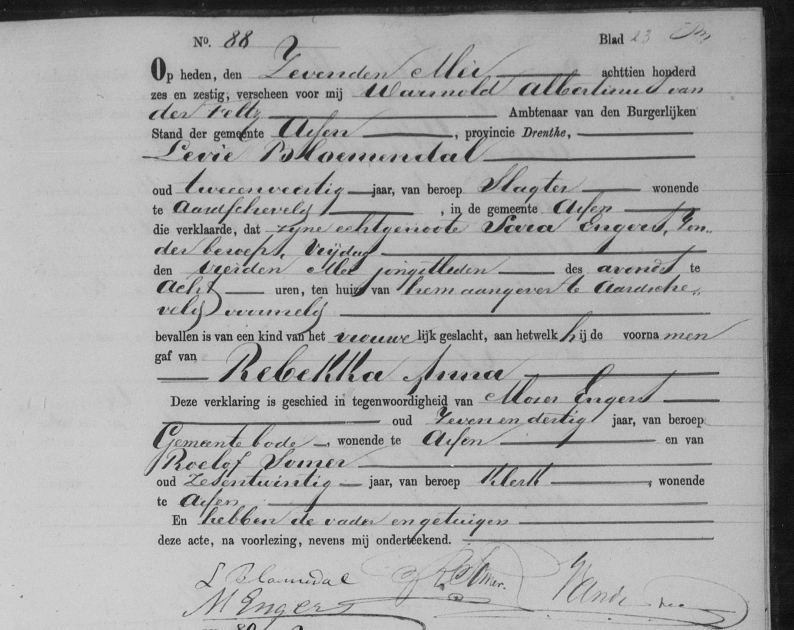 No. 88 Blad 23
Op heden, den Zevenden Mei achttien honderd
zes en zestig, verscheen voor mij Warmold Albertinus van
der Feltz Ambtenaar van den Burgerlijken
Stand der gemeente Assen, provincie Drenthe,
Levie Bloemendal
oud tweeenveertig jaar, van beroep Slagter wonende
te Aardscheveld, in de gemeente Assen
die verklaarde, dat zijne echtgenoote Sara Engers, zon„
der beroep, Vrijdag
den vierden Mei jongstleden des avonds te
acht uren, ten huize van hem aangever te Aardsche„
veld voormeld
bevallen is van een kind van het vrouwelijk geslacht, aan hetwelk hij de voornamen
gaf van
Rebekka Anna
Deze verklaring is geschied in tegenwoordigheid van Mozes Engers
oud Zevenendertig jaar, van beroep
Gemeentebode, wonende te Assen en van
Roelof Somer
oud Zesentwintig jaar, van beroep Klerk, wonende
te Assen
En hebben de vader en getuigen
deze acte, na voorlezing, nevens mij onderteekend.
L Bloemedal R Somer.
M Engers